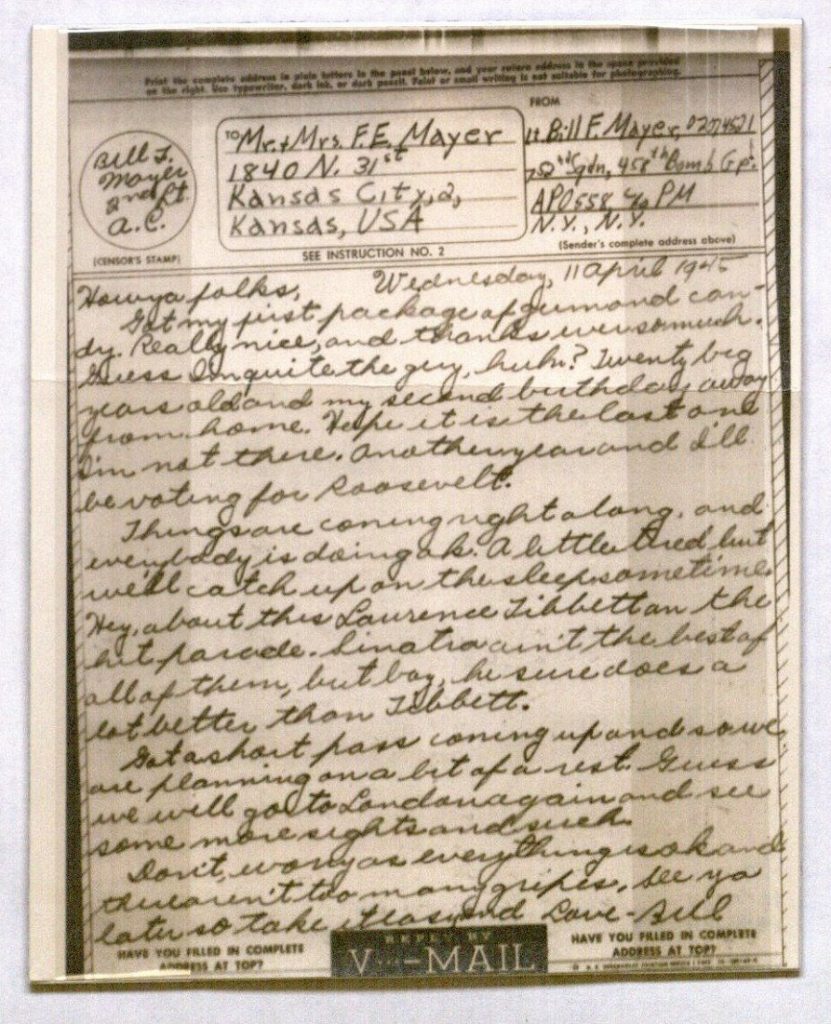 Print the complete address in plain letters in the panel below, and your return address in the space provided
on the right. Use typewriter, dark ink, or dark pencil. Faint or small writing is not suitable for photographing.
FROM
Bill F.
Mayer
2nd Lt.
A.C.
(CENSOR'S STAMP)
TO Mr. & Mrs. F.E. Mayer
1840 N. 31st
Kansas City, 2,
Kansas, USA
SEE INSTRUCTION NO. 2
Lt Bill F. Mayer,
752nd Sqdn, 458th Bomb Gp.
APO 558 c/o PM
N.Y., N.Y.
(Sender's complete address above)
Wednesday, 11 April 1945
Howya folks,
Got my first package of gum and can-
dy. Really nice, and thanks ever so much.
Guess I'm quite the guy, huh? Twenty big
years old and my second birthday away
from home. Hope it is the last one
I'm not there. Another year and I'll
be voting for Roosevelt.
Things are coming right along, and
everybody is doing ok. A little tired but
we'll catch up on the sleep sometime.
Hey, about this Laurence Tibbett on the
hit parade. Sinatra ain't the best of
all of them, but boy, he sure does a
lot better than Tibbett.
Got a short pass coming up and so we
are planning on a bit of a rest. Guess
we will go to London again and see
some more sights and such.
Don't, worry as everything is ok and
there aren't too many gripes. See ya
later so take it easy and Love - Bill
HAVE YOU FILLED IN COMPLETE
ADDRESS AT TOP?
REPLY BY
V···—MAIL
HAVE YOU FILLED IN COMPLETE
ADDRESS AT TOP?